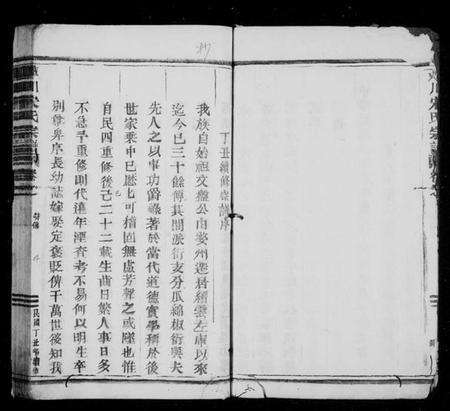 丁丑續修宗譜序
我族自始祖文盤公由婺州遷居縉雲左庫以來
迄今已三十餘傳其間派衍支分瓜綿椒衍與夫
先人之以事功爵祿著於當代道德實學積於後
世家乘中已歷七可指固無虛芳聲之或墜也惟
自民四重修後已二十二載生齒日繁人事日多
不急予重修則代遠年湮查考不易何以明生卒
別尊卑序長幼誌嫁娶定褒貶俾千萬世後知我
川宋氏宗譜
民國丁丑年續修
川宋氏宗譜